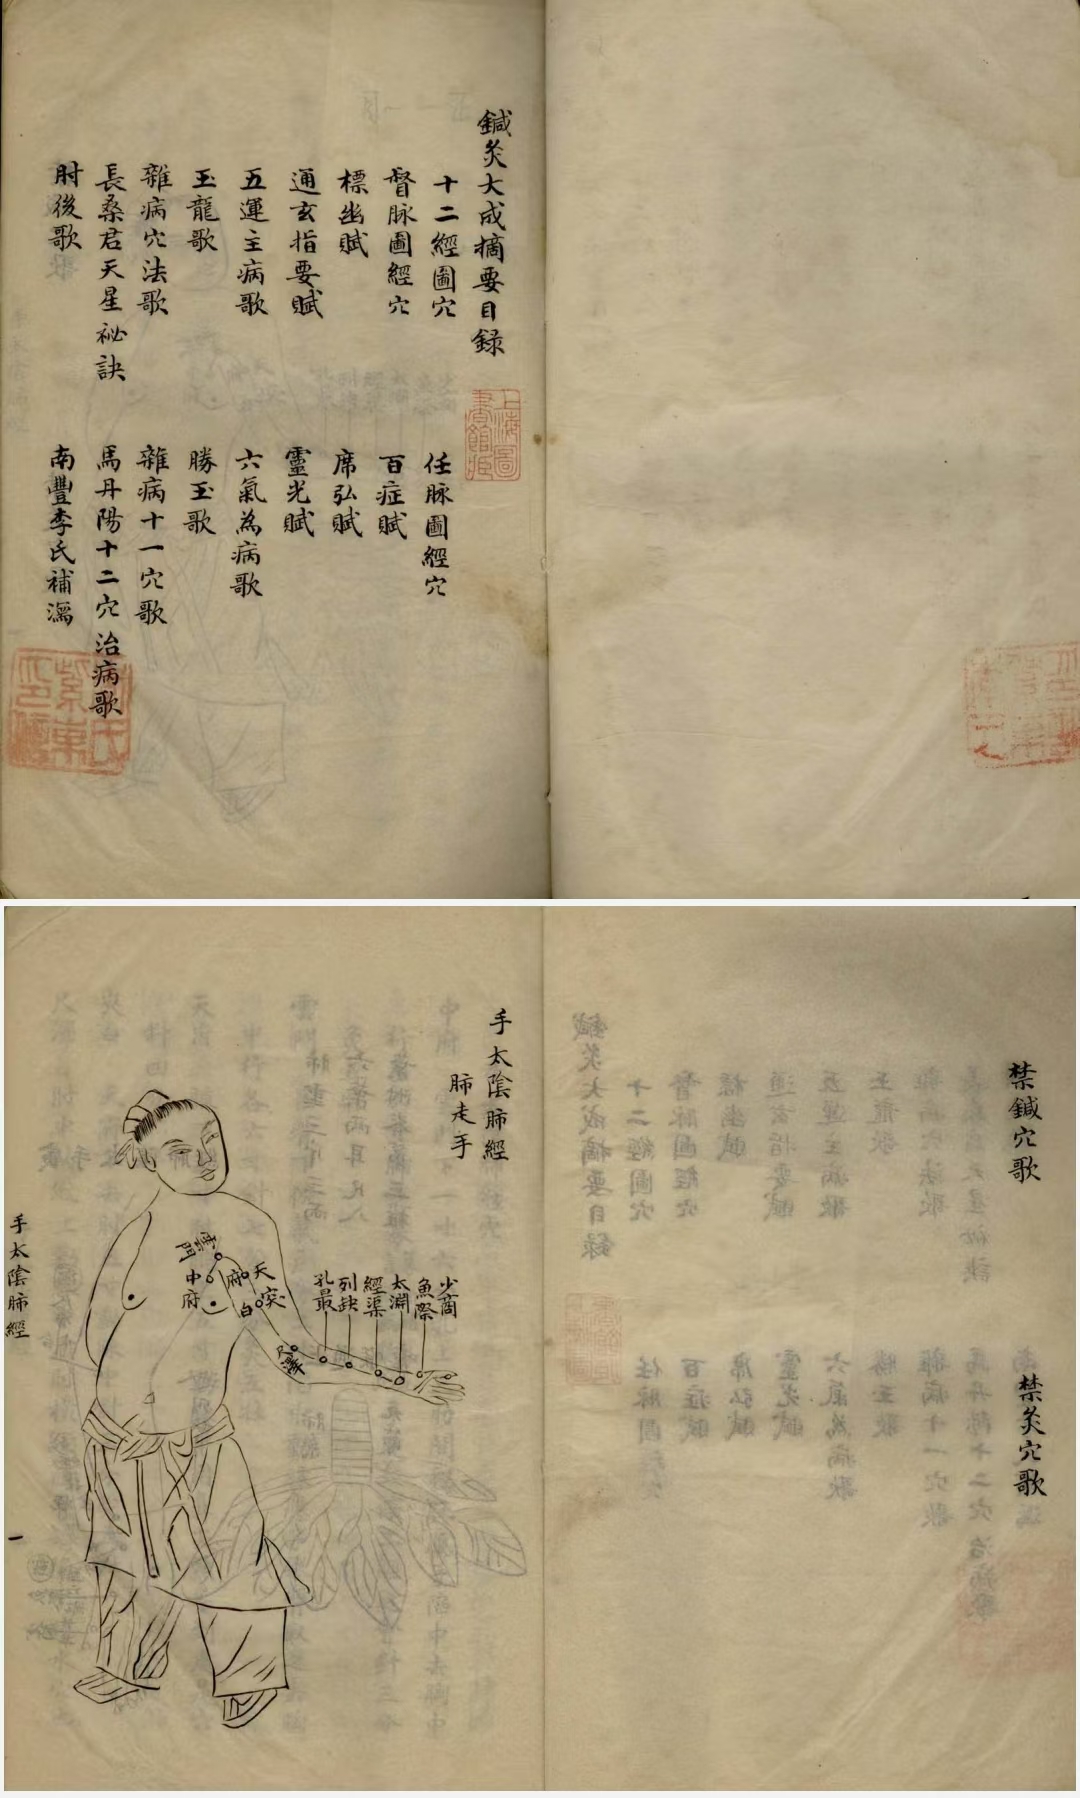 鍼灸大成摘要目錄
十二經圖穴
任脉圖經穴
督脉圖經穴
百症賦
標幽賦
席弘賦
通玄指要賦
靈光賦
五運主病歌
六氣為病歌
玉龍歌
勝玉歌
雜病穴法歌
雜病十一穴歌
長桑君天星祕訣
馬丹陽十二穴治病歌
肘後歌
南豐李氏補瀉
上海圖
書館藏
禁鍼穴歌
禁灸穴歌
手太陰肺經
肺走手
少商
魚際
太淵
經渠
列缺
孔最
尺澤
天
府
白
雲門
中府
手太陰肺經
一